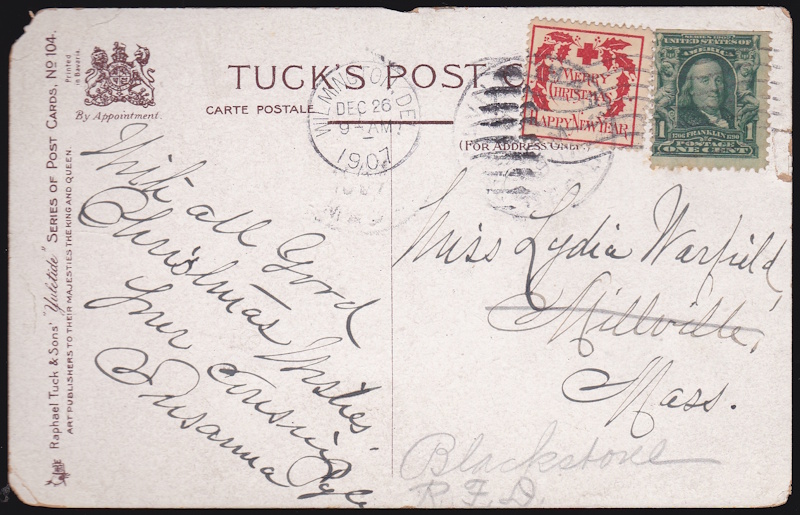 Raphael Tuck & Sons' "Yuletide" Series of Post Cards, No 104.
ART PUBLISHERS TO THEIR MAJESTIES THE KING AND QUEEN.
Printed
in Bavaria.
By Appointment.
TUCK'S POST C
CARTE POSTALE
(FOR ADDRESS ONLY.)
WILMINGTON, DEL.
DEC 26
9 - AM
1907
MERRY
CHRISTMAS
HAPPY NEW YEAR
SERIES 1902
UNITED STATES OF
AMERICA
1 1706 FRANKLIN 1790 1
POSTAGE
ONE CENT
With all Good
Christmas Wishes,
Your Cousin
Susanna Pyle
Miss Lydia Warfield
Millville,
Mass.
Blackstone
R. F. D.